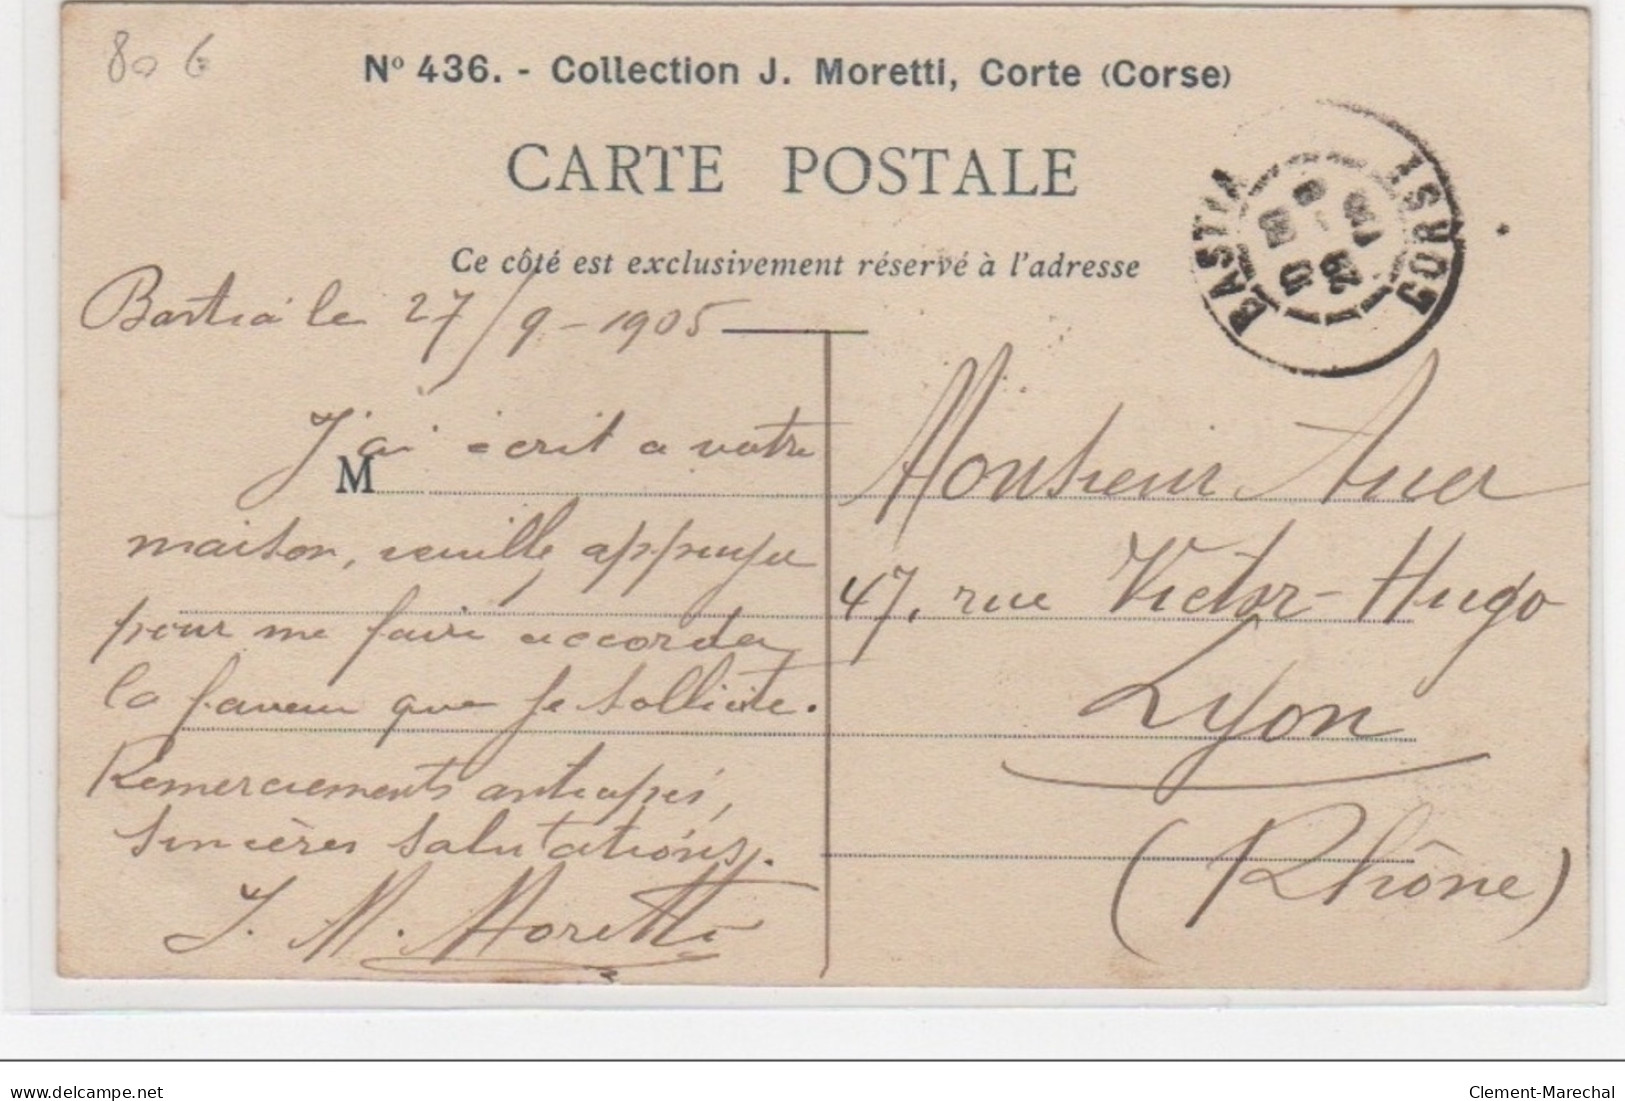 80 €
Nº 436. - Collection J. Moretti, Corte (Corse)
CARTE POSTALE
Ce côté est exclusivement réservé à l'adresse
BASTIA
CORSE
Bastia le 27/9-1905
J'ai écrit a votre
M
maison, veuille appuyer
pour me faire accorder
la faveur que je sollicite.
Remerciements anticipés,
sincères salutations.
J. M. Moretti
Monsieur
47, rue Victor-Hugo
Lyon
(Rhône)
www.delcampe.net
Clement-Marechal